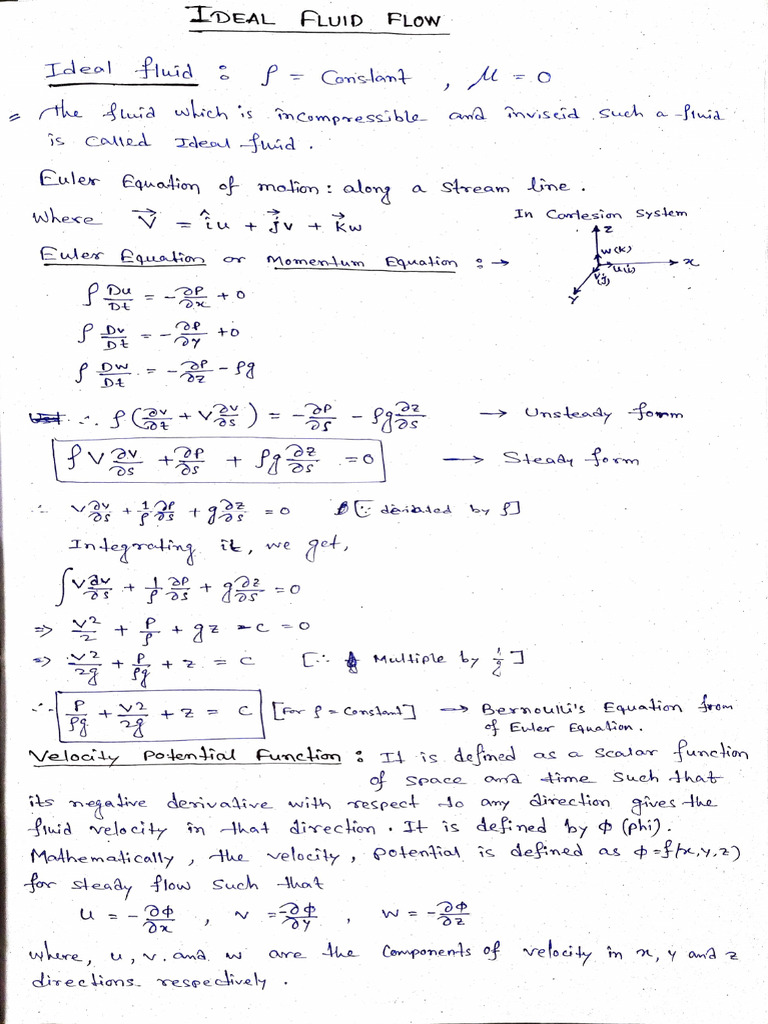 IDEAL FLUID FLOW
Ideal fluid : ρ = Constant , μ = 0
= the fluid which is incompressible and inviscid such a fluid
is called Ideal fluid .
Euler Equation of motion : along a stream line .
Where V⃗ = îu + j⃗v + k⃗w
In Cartesion System
z
w(k)
x
u(i)
v(j)
y
Euler Equation or Momentum Equation : →
ρ Du/Dt = -∂P/∂x + 0
ρ Dv/Dt = -∂P/∂y + 0
ρ Dw/Dt = -∂P/∂z - ρg
∴ ρ(∂v/∂t + v∂v/∂s) = -∂P/∂s - ρg∂z/∂s → Unsteady form
ρV∂v/∂s + ∂P/∂s + ρg∂z/∂s = 0 → Steady form
∴ v∂v/∂s + 1/ρ ∂P/∂s + g∂z/∂s = 0 [∵ deviated by ρ]
Integrating it, we get,
∫v∂v/∂s + 1/ρ ∂P/∂s + g∂z/∂s = 0
⇒ v²/2 + P/ρ + gz - c = 0
⇒ v²/2g + P/ρg + z = c [∵ Multiple by 1/g]
∴ P/ρg + v²/2g + z = c [For ρ = Constant] → Bernoulli's Equation from
of Euler Equation .
Velocity Potential Function : It is defined as a scalar function
of space and time such that
its negative derivative with respect to any direction gives the
fluid velocity in that direction . It is defined by φ (phi) .
Mathematically , the velocity , potential is defined as φ=f(x,y,z)
for steady flow such that
u = -∂φ/∂x , v = -∂φ/∂y , w = -∂φ/∂z
where, u, v. and w are the components of velocity in x, y and z
directions respectively .